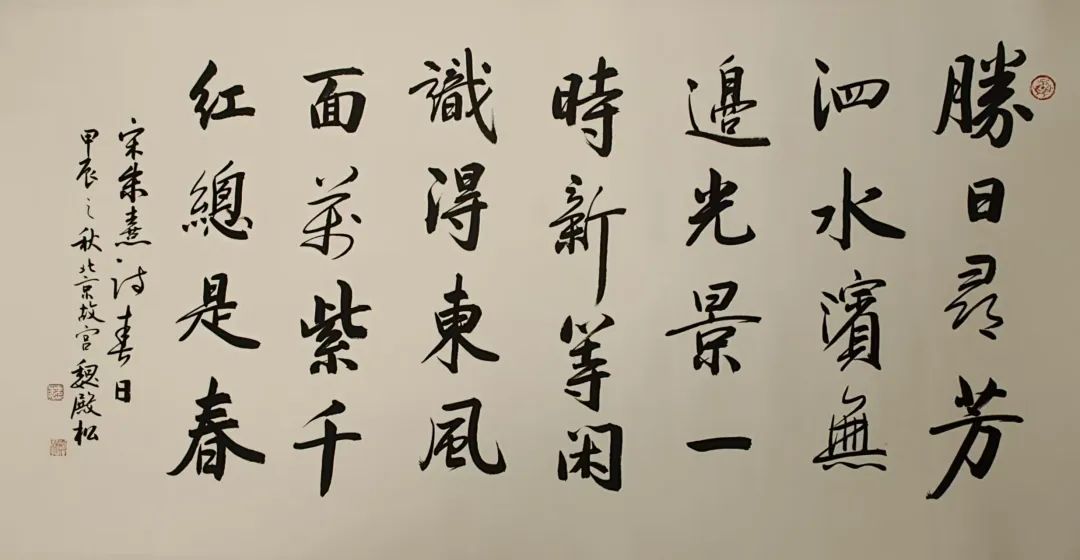 勝日尋芳
泗水濱無
邊光景一
時新等闲
識得東風
面萬紫千
紅總是春
宋朱熹诗春日
甲辰之秋北京故宫魏殿松